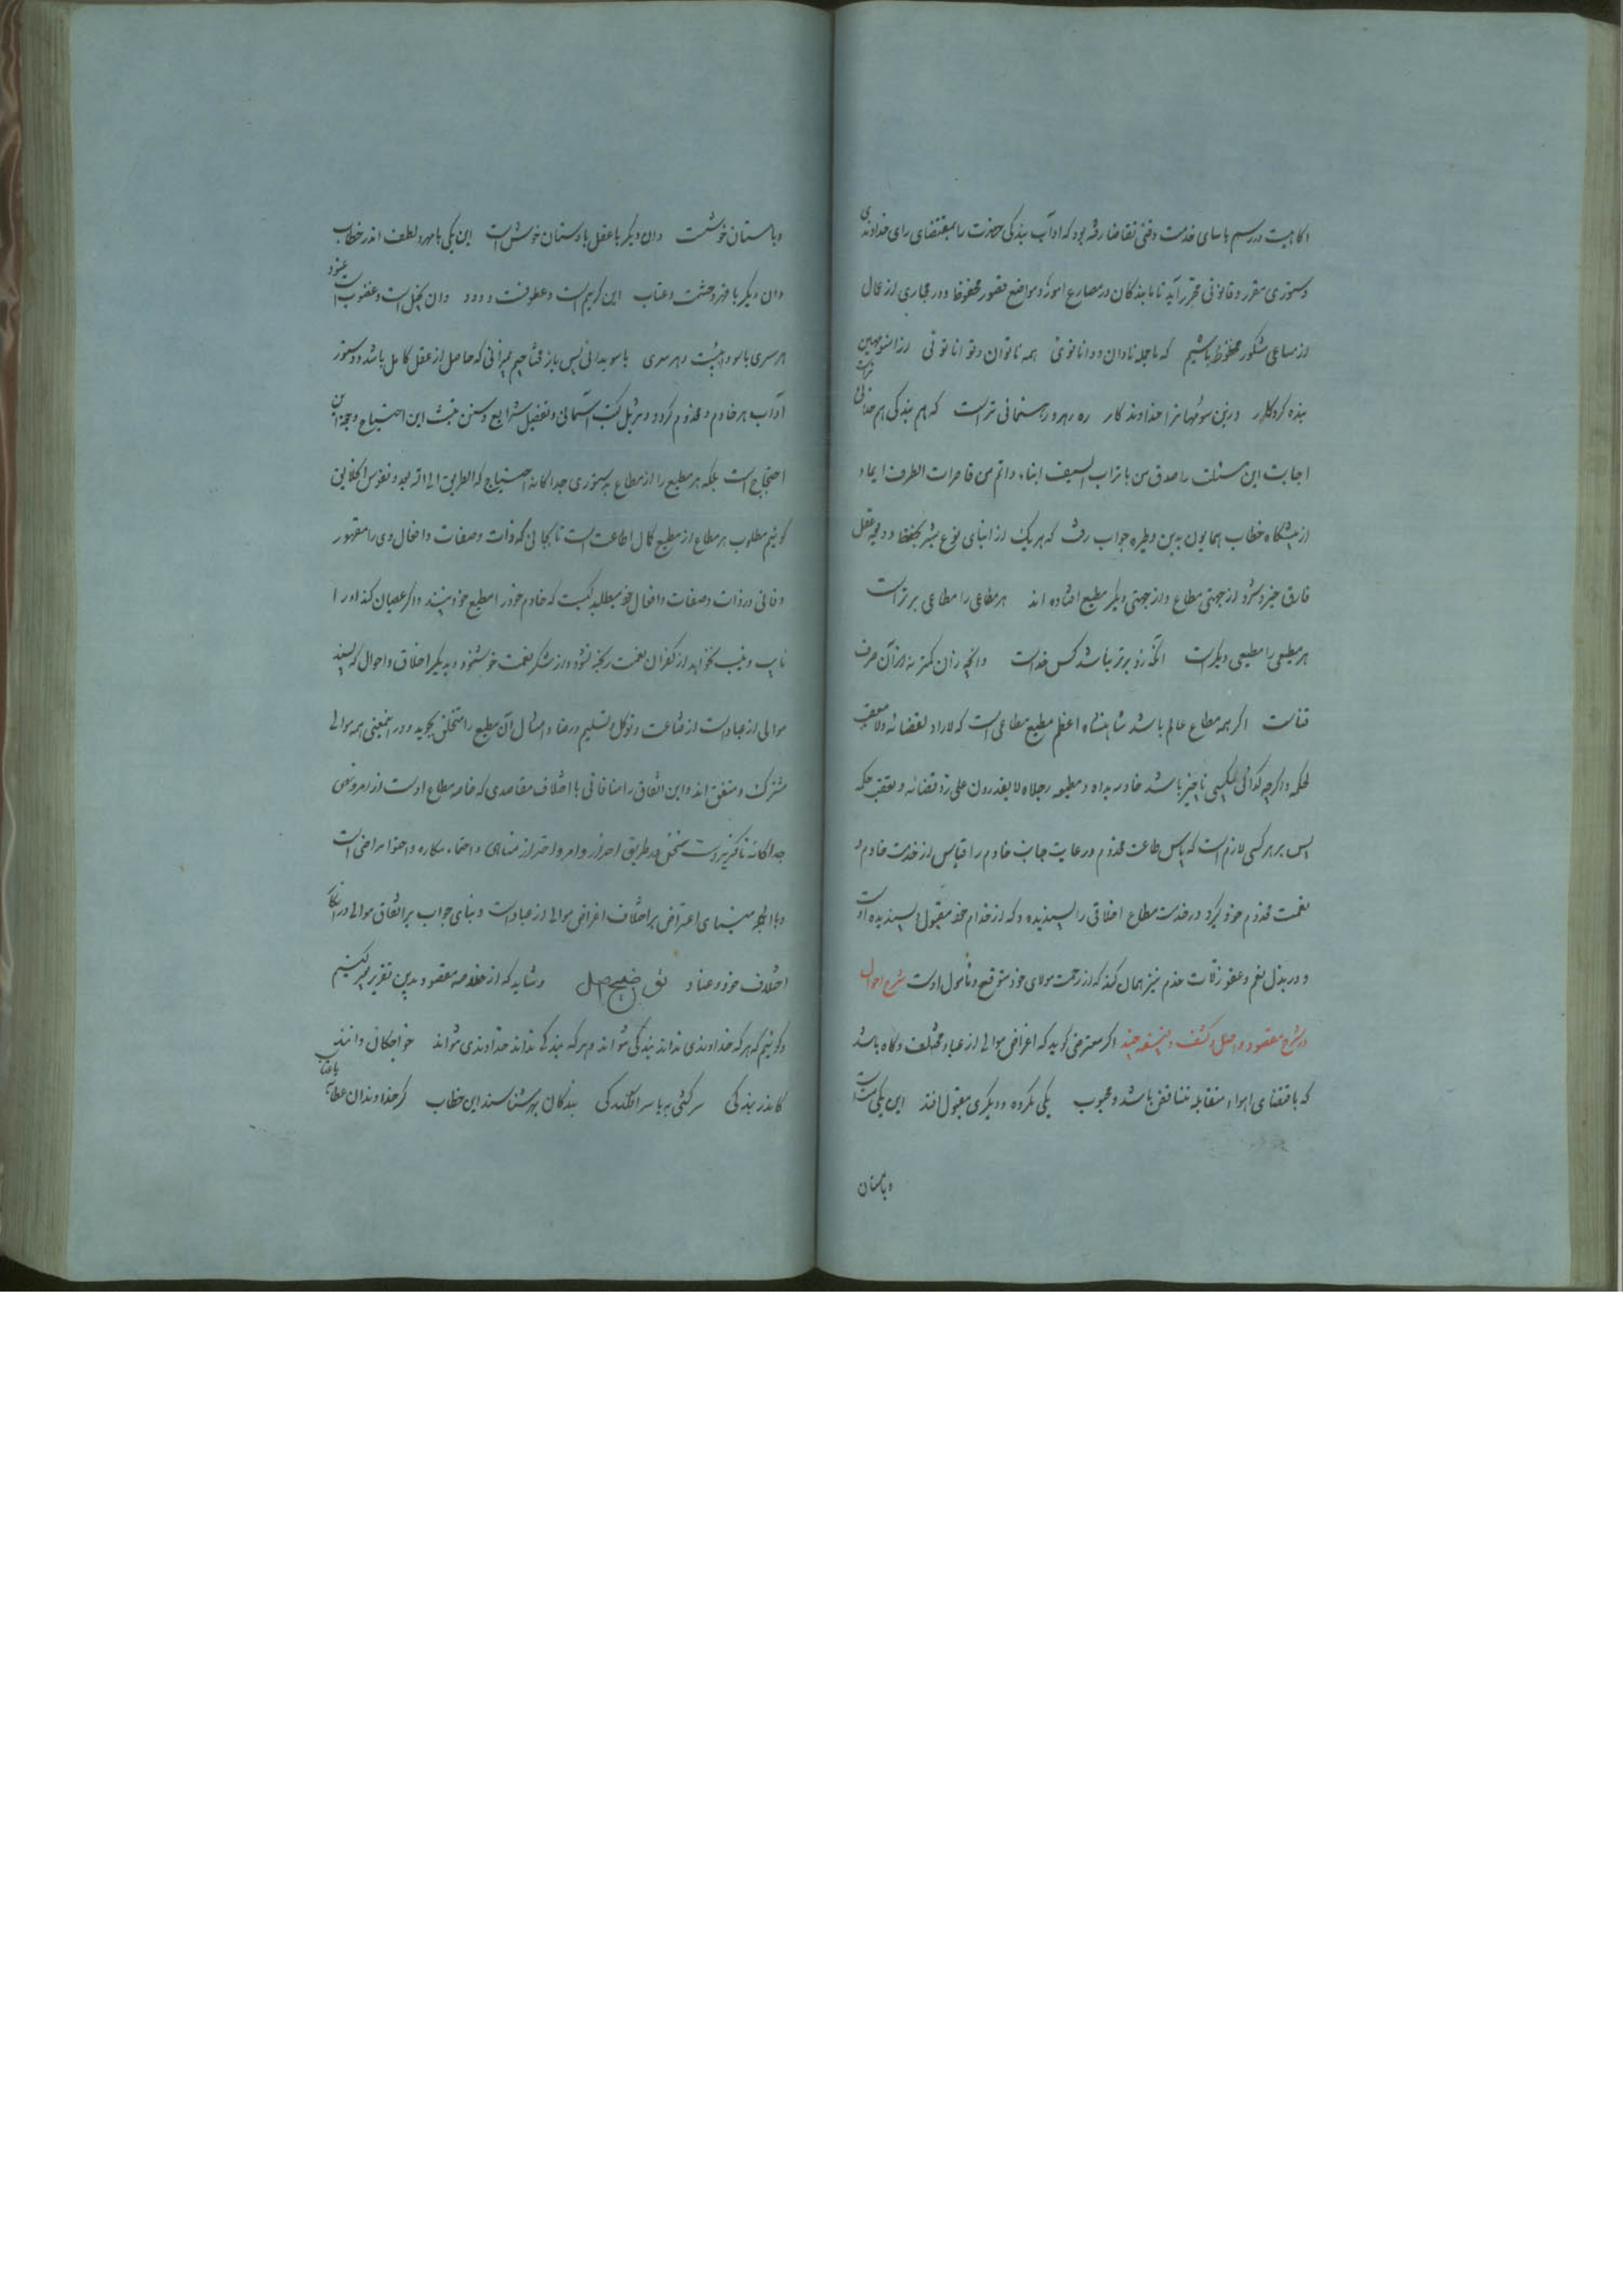 اکاهیت در رسم باسای خدمت وقتی تقاضا رفته بود که اداب بندکی حضرت را بمقتضای رای خداوندی
دستوری مقرر و قانونی محرر آید تا ما بندکان در مصارع امور و مواضع قصور محفوظ و در مجاری اعمال
از مساعی مشکور محظوظ باشیم که ما جمله نادان و دانا توئی همه ناتوان و توانا توئی
بنده کردکار وزین سو مهانرا خداوندکار ره رهرو رهنمائی تراست که هم بندکی هم خدائی تراست
اجابت این مسئلت را اصدق من
از پیشکاه خطاب همایون بدین وطیره جواب رفت که هر یک از ابنای نوع بشر
فارق خیر و شرند از جهتی مطاع و از جهتی دیکر مطیع افتاده اند هر مطاعی را مطاعی برتر است
هر مطیعی را مطیعی دیکر است آنکه زو برتر نباشد کس خداست وانچه زان کمتر نه از آن حرف
فناست اکر همه مطاع عالم باشد شاهنشاه اعظم مطیع مطاعی است که لاراد لقضائه ولا معقب
لحکمه و اکرچه کدائی ناچیز باشد خادمه یداه و مطیعه رجلاه لا یقدرون علی رد قضائه و تعقب حکمه
پس بر هر کسی لازم است که پاس طاعت مخدوم و رعایت جانب خادم را قیاس از خدمت خادم و
نعمت مخدوم خود کیرد در خدمت مطاع اخلاقی را پسندیده دارد که از خدام خود مقبول و پسندیده اوست
و در بذل نعم و عفو زلات خدم نیز همان کند که از رحمت مولای خود متوقع و مامول اوست شرح احوال
در شرح مقصود و اصل و کشف اکر معترضی کوید که اغراض موالی از عباد مختلف و کاه باشد
که باقتضای اهواء متقابله متناقض باشد و محبوب یکی مکروه و دیکری مقبول افتد این یکی
وبامستان
وبامستان خوشست وان دیکر باعقل باوستان خوش است این یکی با مهر و لطف اندر خطاب
وان دیکر با قهر و خشمت وعتاب این کریم است و عطوفت و ودود وان بخیل است و غضوب است
هر سری با سودائیست و هر سری با سودائی پس باز محتاجیم بمیزانی که حاصل از عقل کامل باشد و دستور
آداب هر خادم و مخدوم کردد و تنزیل کتب آسمانی و تفصیل شرایع و سنن مثبت این احتیاج و حجه این
احتجاج است بلکه هر مطیع را از مطاع دستوری جداکانه احتیاج که الطریق الی الله بعدد نفوس الخلایق
کوئیم مطلوب هر مطاع از مطیع کمال اطاعت است تا بجائی که ذات و صفات و افعال وی را مقهور
و فانی در ذات و صفات و افعال خود میطلبد کیست که خادم خود را مطیع خود نپسندد و اکر عصیان کند او را
تایب و منیب نخواهد از کفران نعمت رنجه نشود و از شکر نعمت خوشنود و دیکر اخلاق و احوال که پسند
موالی از عباد است از قناعت و توکل و تسلیم و رضا و امثال آن مطیع را متخلق بجوید و در اینمعنی همه موالی
مشترک و متفق اند و این اتفاق را منافاتی با اختلاف مقاصدی که خاصه مطاع اوست از امر و نهی
جداکانه ناکزیر است در طریق احراز اوامر و احتراز از مناهی و احتماء مکاره و احتواء مراضی است
وبالجمله مبنای اعتراض بر اختلاف اغراض موالی از عباد است و بنای جواب بر اتفاق موالی
اختلاف خود و عناد و شاید که از خلاصه مقصود بدین تقریر تعبیر کنیم
و کوئیم که هر که خداوندی نداند بندکی نتواند و هر که بندکی نداند خداوندی نتواند خواجکان دانند
کاندر بندکی سرکشی به یا سرافکندکی بندکان بهتر شناسند این خطاب کز خداوندان عطا به یا عتاب